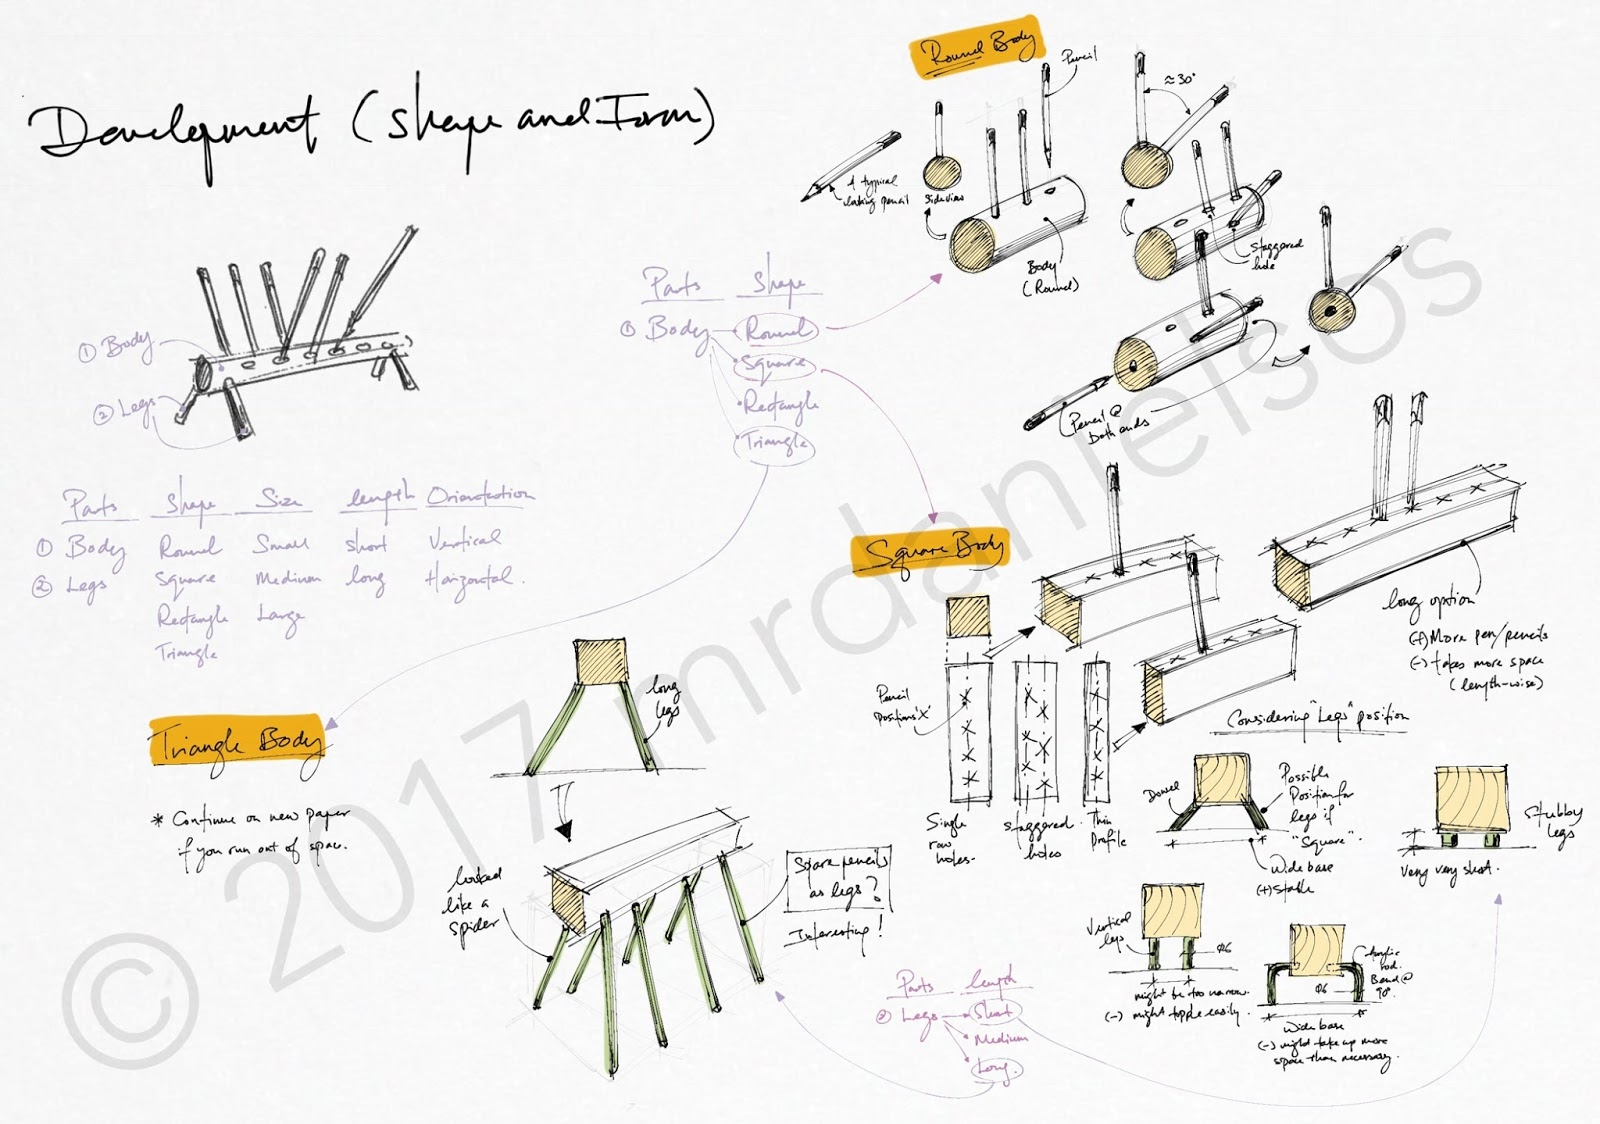 Development (Shape and Form)
① Body
② Legs
Parts Shape Size length Orientation
① Body Round Small short Vertical
② Legs Square Medium long Horizontal.
Rectangle Large
Triangle
Parts Shape
① Body Round
Square
Rectangle
Triangle
Round Body
Pencil
A typical
looking pencil
Side view
Body
(Round)
≈30°
Staggered
hole
Pencil @
both ends
Square Body
Pencil
Positions 'X'
Single
row
holes.
Staggered
holes
Thin
Profile
long option
(+) More pen/pencils
(-) takes more space
(length-wise)
Considering "Legs" position
Dowel
Possible
Position for
legs if
"Square".
Wide base
(+) Stable
Stubby
legs
Very very short.
Vertical
legs
Ø6
might be too narrow.
(-) might topple easily.
Acrylic
rod.
Bend @
90°.
Ø6
Wide base
(-) might take up more
space than necessary.
Triangle Body
* Continue on new paper
if you run out of space.
long
legs
looked
like a
spider
Spare pencils
as legs?
Interesting!
Parts length
② Legs Short
Medium
Long.
© 2017 mrdanielsos